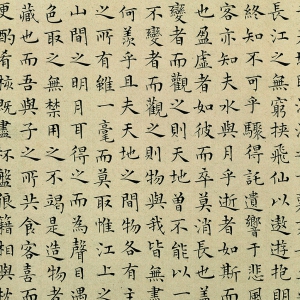 長江之無窮挾飛仙以遨遊抱
終知不可乎驟得託遺響于悲風
客亦知夫水與月乎逝者如斯而
也盈虛者如彼而卒莫消長也蓋
變者而觀之則天地曾不能以一
不變者而觀之則物與我皆無盡
何羨乎且夫天地之間物各有主
之所有雖一毫而莫取惟江上之
山間之明月耳得之而為聲目遇
色取之無禁用之不竭是造物者
藏也而吾與子之所共食客喜而
更酌肴核既盡杯盤狼籍相與枕